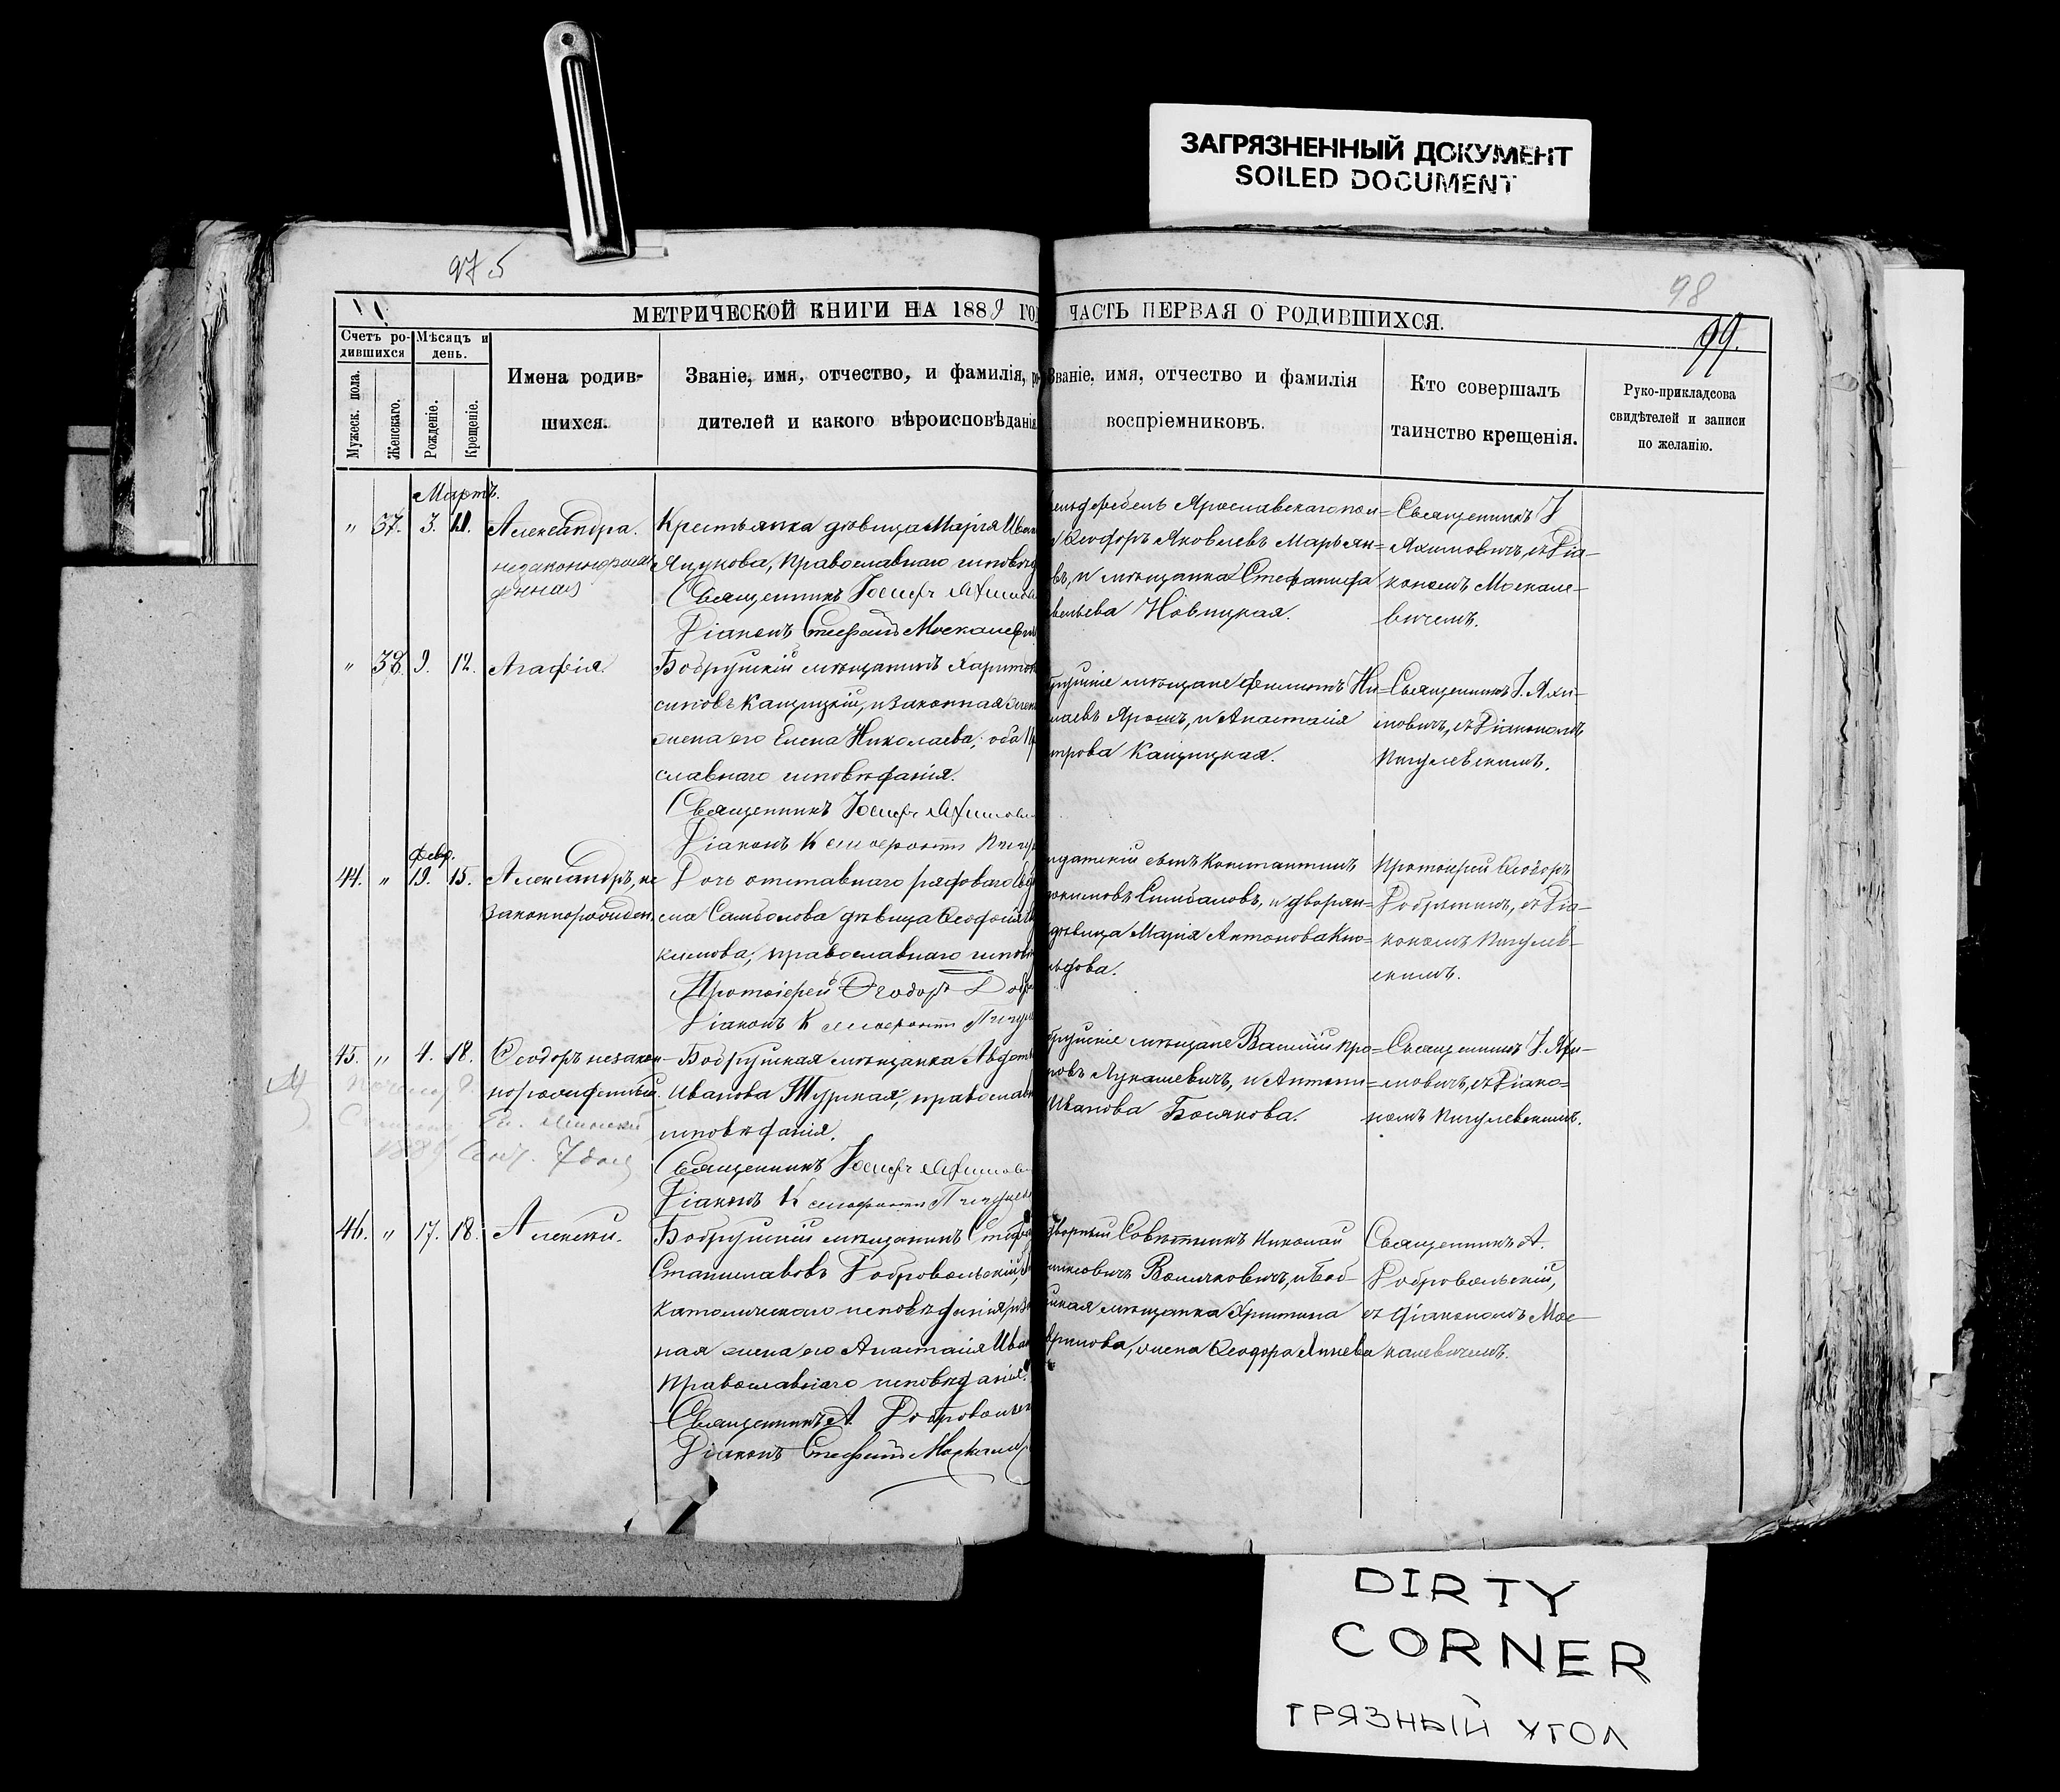 ЗАГРЯЗНЕННЫЙ ДОКУМЕНТ
SOILED DOCUMENT
975
98
99.
МЕТРИЧЕСКОЙ КНИГИ НА 1889 ГОД
ЧАСТЬ ПЕРВАЯ О РОДИВШИХСЯ.
Счетъ ро-
дившихся
Мѣсяцъ и
день.
Мужеск. пола.
Женскаго.
Рожденіе.
Крещеніе.
Имена родив-
шихся.
Званіе, имя, отчество, и фамилія, ро-
дителей и какого вѣроисповѣданія
Званіе, имя, отчество и фамилія
воспріемниковъ.
Кто совершалъ
таинство крещенія.
Руко-прикладсова
свидѣтелей и записи
по желанію.
Мартъ.
" 37. 3. 11. Александра.
незаконнорож
денная
Крестьянка дѣвица Марія Иван
Яцукова, Православнаго исповѣд
Священникъ Іосифъ Яхимов
Діаконъ Стефанъ Москалев
фельдфебель Ярославскаго пол=
Ѳеодоръ Яковлевъ Марьян=
въ, и мѣщанка Стефанида
Новицкая.
Священникъ І
Яхимовичъ, съ Діа-
кономъ Москале-
вичемъ.
" 38. 9. 12. Агафія.
Бобруйскій мѣщанинъ Харитон
симовъ Кащицкій, и законная
жена его Елена Николаева; оба Пр
славнаго исповѣданія.
Священникъ Іосифъ Яхимов
Діаконъ К
бруйскіе мѣщане Филиппъ Ни=
лаевъ Ярошъ, и Анастасія
трова Кащицкая.
Священникъ І. Яхи-
мовичъ, съ Діакономъ
Пигулевскимъ.
Февр.
44. " 19. 15. Александръ, не
законнорожден.
Дочь отставнаго рядоваго Евд
има Самбалова дѣвица Ѳеодосія Ев
кимова, православнаго исповѣ
Протоіерей Ѳеодоръ Добр
Діаконъ К
Константинъ
докимовъ Симбаловъ, и дворян=
дѣвица Марія Антонова Кно=
Протоіерей Ѳеодоръ
Добрянинъ, съ Діа-
кономъ Пигулев-
скимъ.
45. " 4. 18. Ѳеодоръ незакон-
норожденный.
Бобруйская мѣщанка Авдот
Иванова Турская, православн
исповѣданія.
Священникъ Іосифъ Яхимов
Діаконъ К
бруйскіе мѣщане Василій Про=
повъ Лукашевичъ, и Антони=
Иванова Босякова.
Священникъ І. Яхи-
мовичъ, съ Діако=
номъ Пигулевскимъ.
46. " 17. 18. Алексій.
Бобруйскій мѣщанинъ Стеф
Станиславовъ Добровольскій,
католическаго исповѣданія,
ная жена его Анастасія Ива
Православнаго исповѣданія.
Священникъ А. Добровольск
Діаконъ Стефанъ Москалев
дворный Совѣтникъ Николай
Величковичъ, и Боб-
йская мѣщанка Христина
жена Ѳеодора
Священникъ А.
Добровольскій,
съ діакономъ Мос-
калевичемъ.
DIRTY
CORNER
ГРЯЗНЫЙ УГОЛ